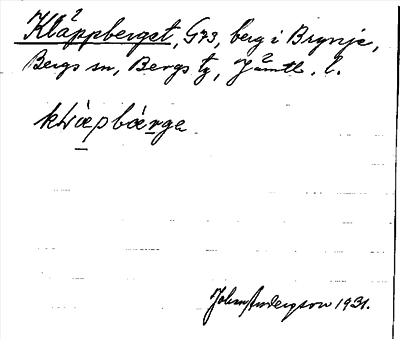 Kläppberget, G73, berg i Brynje,
Bergs sn, Bergs tg, Jämtl. l.
kLæ̀pbæ̀rge
John Anderson 1931.